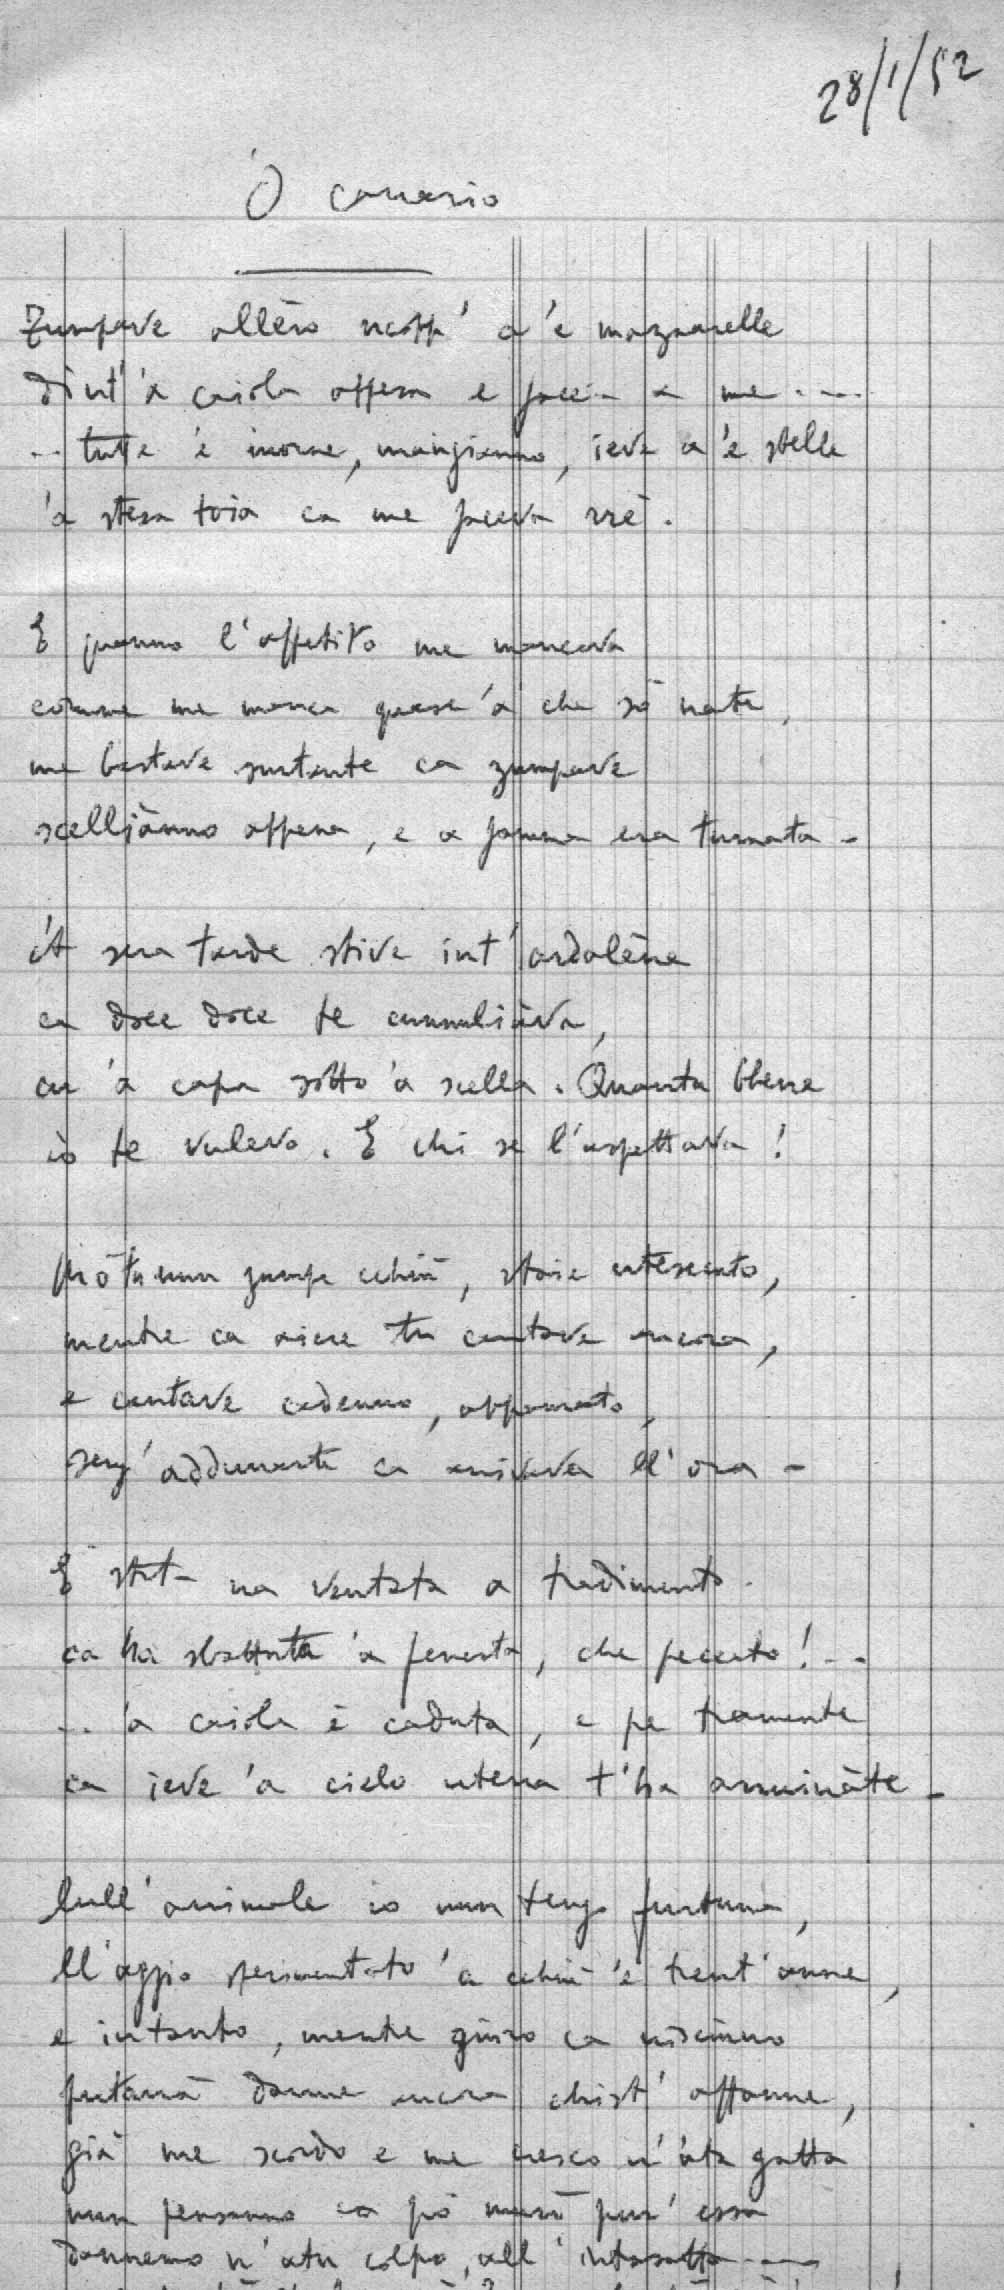 28/1/52
'O canario
Zumpave allèro ncopp' a 'e mazzarelle
dint' 'a caiola appesa e face- a me....
.. tutte 'e iuorne, mangianno, ieve a 'e stelle
'a stesa toia ca me faceva rré.
E quanno l'appetito me mancava
comme me manca quase 'a che so' nato,
me bastave surtante ca zumpave
scelliànno appena, e a famma era turnata -
'A sera tarde stive int'
ca doce doce te cummigliàva,
cu 'a capa sotto 'a scella. Quantu bbene
io te vulevo. E chi se l'aspettava!
Mò tu nun zumpe cchiù, staie ntesecato,
mentre ca aiere tu cantave ancora,
e cantave cadenno, appaurato,
senz' addunarte ca arrivava ll'ora -
E' stat- na ventata a tradimento
ca ha sbattuta 'a fenesta, che peccato!...
... 'a caiola è caduta, e pe tramente
ca ieve 'a cielo nterra t'ha arruinàte -
Cu ll'animale io nun tengo furtuna,
ll'aggio sperimentato 'a cchiù 'e trent'anne,
e intanto, mentre giuro ca nisciuno
putarrà darme ancora chist' affanne,
già me scordo e me cresco n'ata gatta
nun penzanno ca pò murì pur' essa
dannemo n'atu colpo, all' intasatta ....